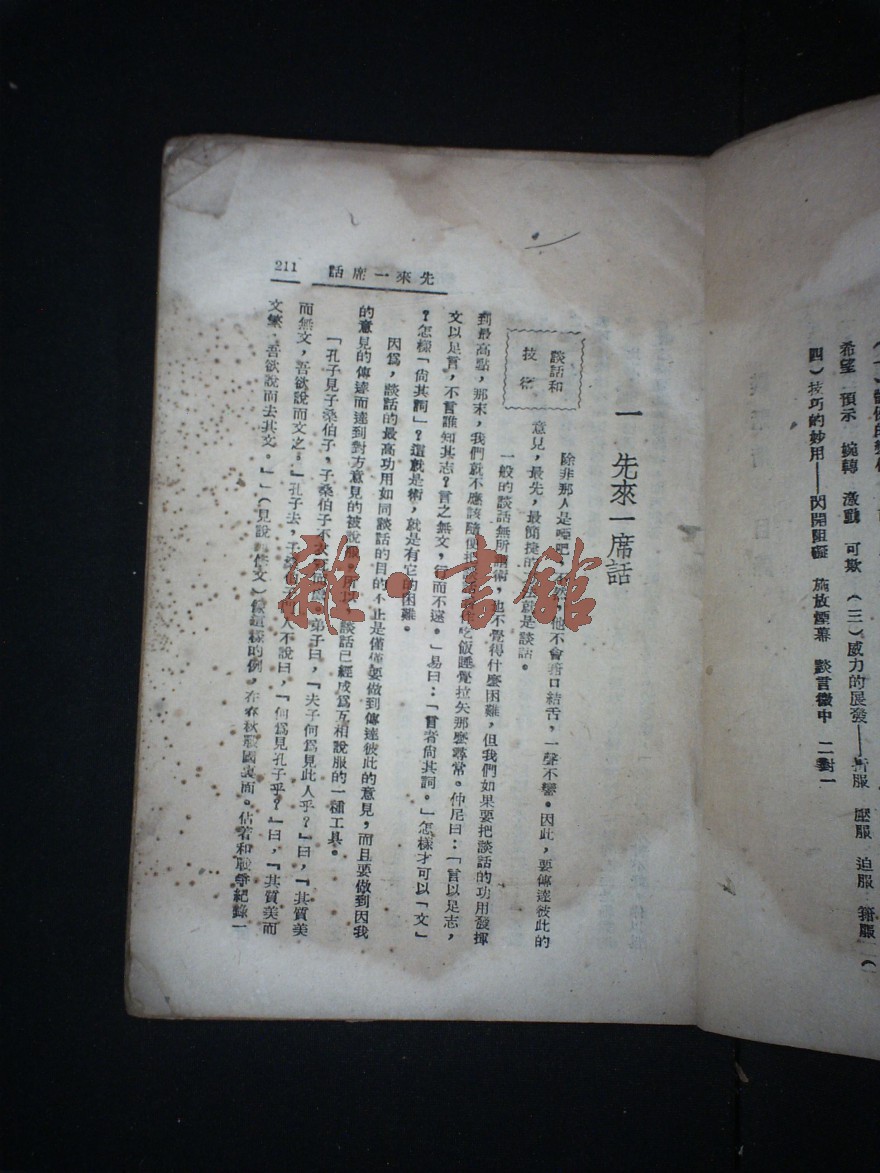 希望 預示 婉轉 激動 可欺 (三)威力的展發——折服 壓服 迫服
四)技巧的妙用——閃開阻礙 施放煙幕 談言微中 二對一
一 先來一席話
談話和
技術
除非那人是啞吧,他不會箝口結舌,一聲不響。因此,要傳達彼此的
意見,最先,最簡捷的就是談話。
一般的談話無所謂術,也不覺得什麼困難,但我們如果要把談話的功用發揮
到最高點,那末,我們就不應該隨便把吃飯睡覺拉矢那麼尋常。仲尼曰:「言以足志,
文以足言,不言誰知其志?言之無文,行而不遠。」易曰:「言者尙其詞。」怎樣才可以「文」
?怎樣「尙其詞」?這就是術,就是有它的困難。
因爲,談話的最高功用如同談話的目的不止是僅僅要做到傳達彼此的意見,而且要做到因我
的意見的傳達而達到對方意見的被說服。所以,談話已經成爲互相說服的一種工具。
「孔子見子桑伯子,子桑伯子不衣冠而處。弟子曰,『夫子何爲見此人乎?』曰,『其質美
而無文,吾欲說而文之。』孔子去,子桑伯子門人不說曰,『何爲見孔子乎?』曰,『其質美而
文繁,吾欲說而去其文。』」(見說苑修文)像這樣的例,在春秋戰國裏面。佔著和戰爭紀錄一
先來一席話
211
雜·書館